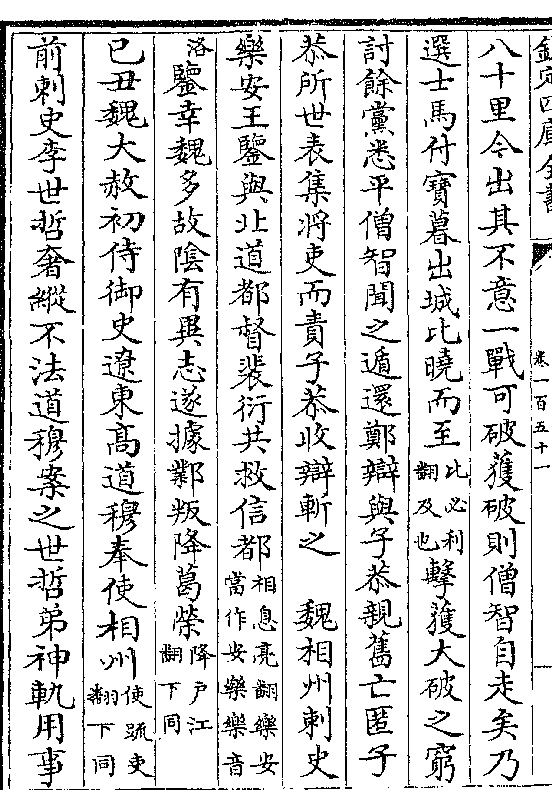 欽定四庫全書
卷一百五十一
八十里今出其不意一戰可破獲破則僧智自走矣乃
選士馬付寶暮出城比曉而至比必利翻及也擊獲大破之窮
討餘黨悉平僧智聞之遁還鄭辯與子恭親舊亡匿子
恭所世表集將吏而責子恭收辯斬之　魏相州刺史
樂安王鑒與北道都督裴衍共救信都相息亮翻樂安當作安樂樂音
洛鑒幸魏多故陰有異志遂據鄴叛降葛榮降户江翻下同
己丑魏大赦初侍御史遼東髙道穆奉使相州使疏吏翻下同
前刺史李世哲奢縱不法道穆案之世哲弟神軌用事